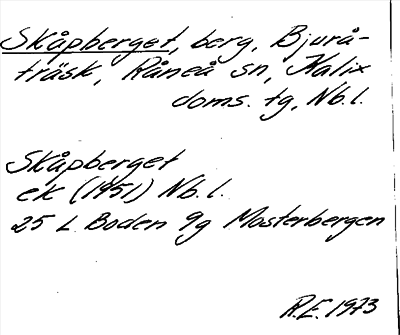 Skåpberget, berg, Bjurå-
träsk, Råneå sn, Kalix
doms. tg, Nb.l.
Skåpberget
ek (1951) Nb.l.
25 L Boden 9g Mosterbergen
R.E. 1973